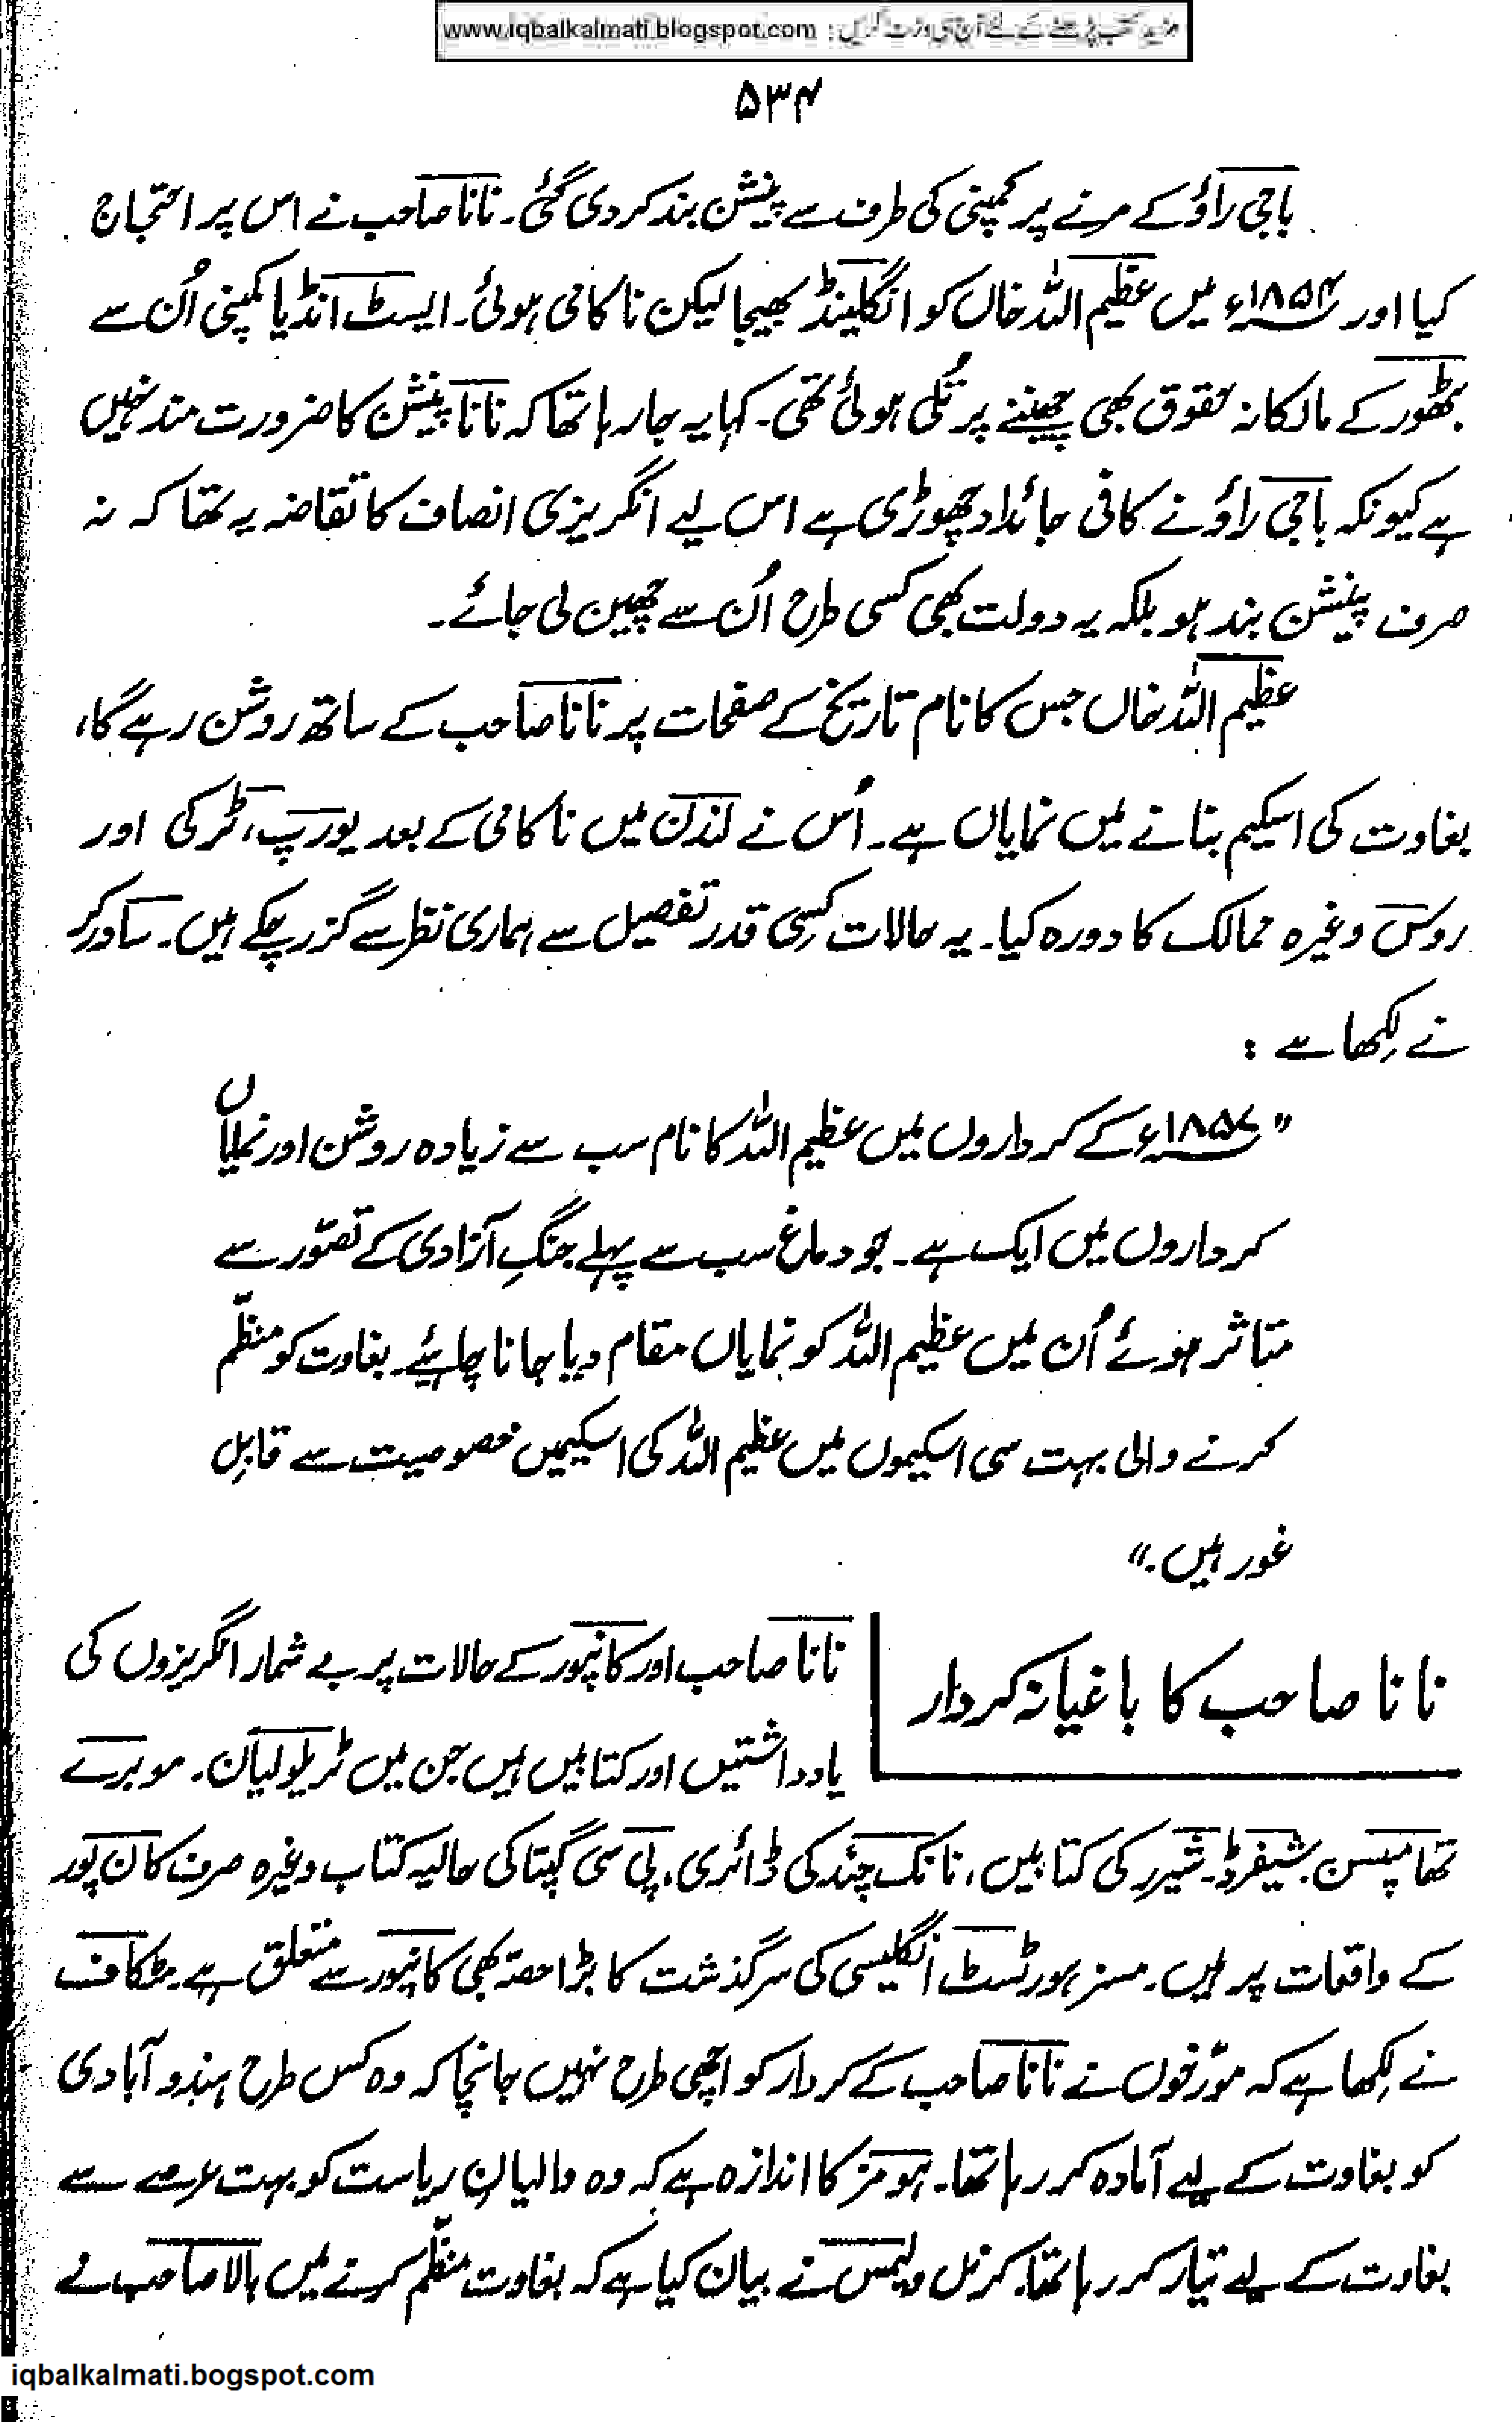 مزید کتب پڑھنے کے لئے آج ہی وزٹ کریں : www.iqbalkalmati.blogspot.com
۵۳۴
باجی راؤ کے مرنے پر کمپنی کی طرف سے پنشن بند کر دی گئی۔ نانا صاحب نے اس پر احتجاج
کیا اور ۱۸۵۴ء میں عظیم اللہ خاں کو انگلینڈ بھیجا لیکن ناکامی ہوئی۔ ایسٹ انڈیا کمپنی اُن سے
بٹھور کے مالکانہ حقوق بھی چھیننے پر تُلی ہوئی تھی۔ کہا یہ جا رہا تھا کہ نانا پنشن کا ضرورت مند نہیں
ہے کیونکہ باجی راؤ نے کافی جائداد چھوڑی ہے اس لیے انگریزی انصاف کا تقاضہ یہ تھا کہ نہ
صرف پنشن بند ہو بلکہ یہ دولت بھی کسی طرح اُن سے چھین لی جائے۔
عظیم اللہ خاں جس کا نام تاریخ کے صفحات پر نانا صاحب کے ساتھ روشن رہے گا،
بغاوت کی اسکیم بنانے میں نمایاں ہے۔ اُس نے لندن میں ناکامی کے بعد یورپ، ٹرکی اور
روس وغیرہ ممالک کا دورہ کیا۔ یہ حالات کسِی قدر تفصیل سے ہماری نظر سے گزر چکے ہیں۔ ساورکر
نے لِکھا ہے :
"۱۸۵۷ء کے کرداروں میں عظیم اللہ کا نام سب سے زیادہ روشن اور نمایاں
کرداروں میں ایک ہے۔ جو دماغ سب سے پہلے جنگِ آزادی کے تصوّر سے
متاثر ہوئے اُن میں عظیم اللہ کو نمایاں مقام دیا جانا چاہیئے۔ بغاوت کو منظّم
کرنے والی بہت سی اسکیموں میں عظیم اللہ کی اسکیمیں خصوصیت سے قابلِ
غور ہیں۔"
نانا صاحب کا باغیانہ کردار
نانا صاحب اور کانپور کے حالات پر بے شمار انگریزوں کی
یادداشتیں اور کتابیں ہیں جن میں ٹریولیان۔ موبرے
تھامپسن۔ شیفرڈ۔ شیرر کی کتابیں، نانک چند کی ڈائری، پی سی گپتا کی حالیہ کتاب وغیرہ صرف کان پور
کے واقعات پر ہیں۔ مسز ہورٹسٹ انگلیسی کی سرگذشت کا بڑا حصّہ بھی کانپور سے متعلق ہے۔ مٹکاف
نے لِکھا ہے کہ مؤرخوں نے نانا صاحب کے کردار کو اچھی طرح نہیں جانچا کہ وہ کس طرح ہندو آبادی
کو بغاوت کے لیے آمادہ کر رہا تھا۔ ہومز کا اندازہ ہے کہ وہ والیانِ ریاست کو بہت عرصے سے
بغاوت کے لیے تیار کر رہا تھا۔ کرنل ولیمس نے بیان کیا ہے کہ بغاوت منظّم کرنے میں بالا صاحب نے
iqbalkalmati.bogspot.com